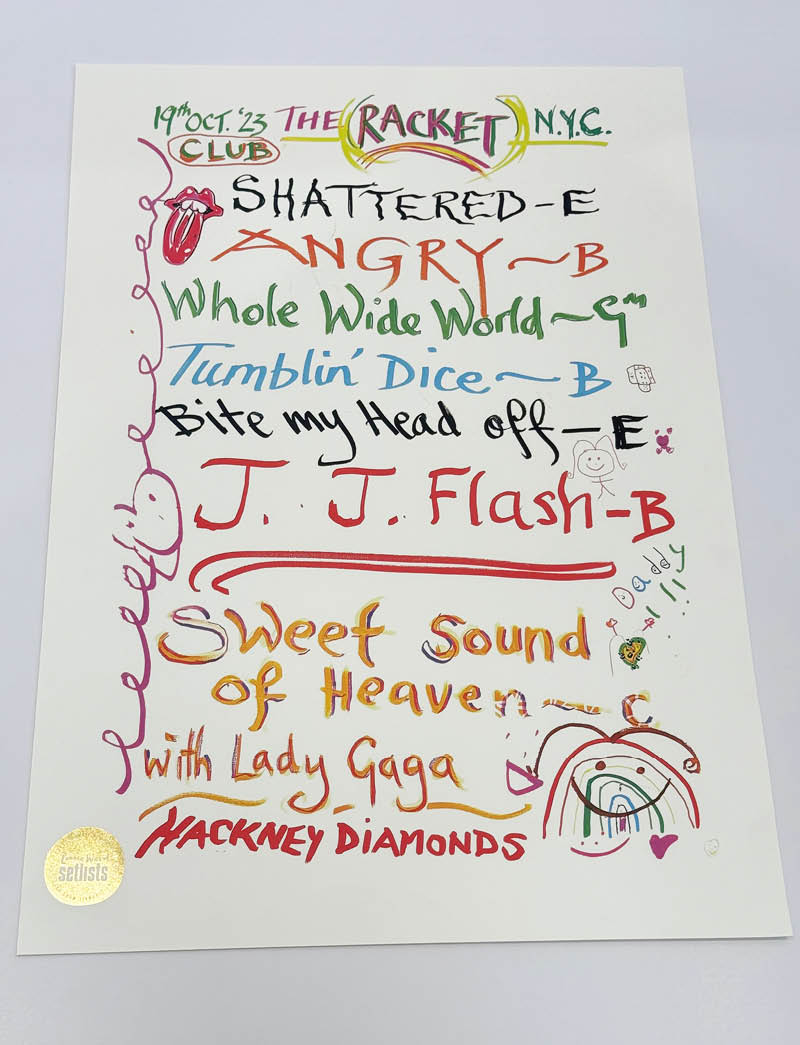 19th OCT. '23 THE (RACKET) N.Y.C.
CLUB
SHATTERED - E
ANGRY ~ B
Whole Wide World ~ Gm
Tumblin' Dice ~ B
Bite my Head off - E
J. J. Flash - B
Daddy
Sweet Sound
of Heaven ~ C
with Lady Gaga
HACKNEY DIAMONDS
Ronnie Wood
setlists